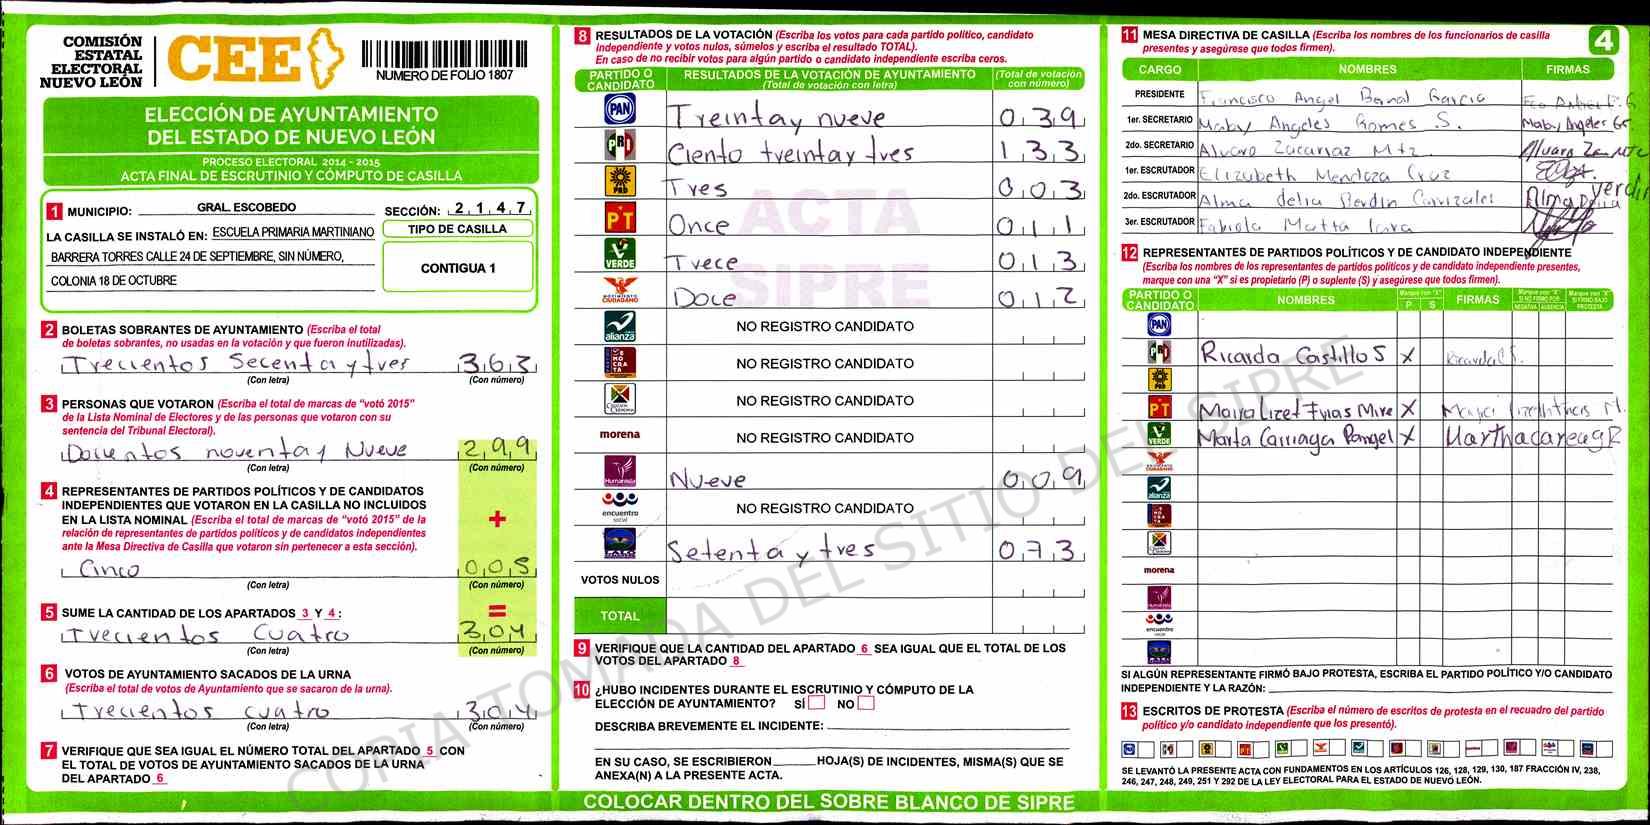 COMISIÓN
ESTATAL
ELECTORAL
NUEVO LEÓN
CEE
NUMERO DE FOLIO 1807
ELECCIÓN DE AYUNTAMIENTO
DEL ESTADO DE NUEVO LEÓN
PROCESO ELECTORAL 2014 - 2015
ACTA FINAL DE ESCRUTINIO Y CÓMPUTO DE CASILLA
1 MUNICIPIO: GRAL. ESCOBEDO SECCIÓN: 2 1 4 7
LA CASILLA SE INSTALÓ EN: ESCUELA PRIMARIA MARTINIANO
BARRERA TORRES CALLE 24 DE SEPTIEMBRE, SIN NÚMERO,
COLONIA 18 DE OCTUBRE
TIPO DE CASILLA
CONTIGUA 1
2 BOLETAS SOBRANTES DE AYUNTAMIENTO (Escriba el total
de boletas sobrantes, no usadas en la votación y que fueron inutilizadas).
Trecientos Secenta y tres 3 6 3
(Con letra) (Con número)
3 PERSONAS QUE VOTARON (Escriba el total de marcas de “votó 2015”
de la Lista Nominal de Electores y de las personas que votaron con su
sentencia del Tribunal Electoral).
Docientos noventa y Nueve 2 9 9
(Con letra) (Con número)
4 REPRESENTANTES DE PARTIDOS POLÍTICOS Y DE CANDIDATOS
INDEPENDIENTES QUE VOTARON EN LA CASILLA NO INCLUIDOS
EN LA LISTA NOMINAL (Escriba el total de marcas de “votó 2015” de la
relación de representantes de partidos políticos y de candidatos independientes
ante la Mesa Directiva de Casilla que votaron sin pertenecer a esta sección).
+
Cinco 0 0 5
(Con letra) (Con número)
5 SUME LA CANTIDAD DE LOS APARTADOS 3 Y 4 : =
Trecientos cuatro 3 0 4
(Con letra) (Con número)
6 VOTOS DE AYUNTAMIENTO SACADOS DE LA URNA
(Escriba el total de votos de Ayuntamiento que se sacaron de la urna).
Trecientos cuatro 3 0 4
(Con letra) (Con número)
7 VERIFIQUE QUE SEA IGUAL EL NÚMERO TOTAL DEL APARTADO 5 CON
EL TOTAL DE VOTOS DE AYUNTAMIENTO SACADOS DE LA URNA
DEL APARTADO 6
8 RESULTADOS DE LA VOTACIÓN (Escriba los votos para cada partido político, candidato
independiente y votos nulos, súmelos y escriba el resultado TOTAL).
En caso de no recibir votos para algún partido o candidato independiente escriba ceros.
PARTIDO O CANDIDATO RESULTADOS DE LA VOTACIÓN DE AYUNTAMIENTO (Total de votación con letra) (Total de votación con número)
PAN Treinta y nueve 0 3 9
PRI Ciento treinta y tres 1 3 3
PRD Tres 0 0 3
PT Once 0 1 1
VERDE Trece 0 1 3
MOVIMIENTO CIUDADANO Doce 0 1 2
alianza NO REGISTRO CANDIDATO
DEMOCRATA NO REGISTRO CANDIDATO
NO REGISTRO CANDIDATO
morena NO REGISTRO CANDIDATO
Humanista Nueve 0 0 9
encuentro social NO REGISTRO CANDIDATO
Setenta y tres 0 7 3
VOTOS NULOS
TOTAL
ACTA
SIPRE
9 VERIFIQUE QUE LA CANTIDAD DEL APARTADO 6 SEA IGUAL QUE EL TOTAL DE LOS
VOTOS DEL APARTADO 8
10 ¿HUBO INCIDENTES DURANTE EL ESCRUTINIO Y CÓMPUTO DE LA
ELECCIÓN DE AYUNTAMIENTO? SÍ NO
DESCRIBA BREVEMENTE EL INCIDENTE:
EN SU CASO, SE ESCRIBIERON HOJA(S) DE INCIDENTES, MISMA(S) QUE SE
ANEXA(N) A LA PRESENTE ACTA.
COLOCAR DENTRO DEL SOBRE BLANCO DE SIPRE
COPIA TOMADA DEL SITIO DEL SIPRE
11 MESA DIRECTIVA DE CASILLA (Escriba los nombres de los funcionarios de casilla
presentes y asegúrese que todos firmen).
4
CARGO NOMBRES FIRMAS
PRESIDENTE Francisco Angel Bernal Garcia
1er. SECRETARIO Maby Angeles Gomes S. Maby Angeles Gs.
2do. SECRETARIO Alvaro Zacarias Mtz.
1er. ESCRUTADOR Elizabeth Mendoza Cruz
2do. ESCRUTADOR Alma delia Verdin Carrizales Alma Delia Verdin
3er. ESCRUTADOR Fabiola Matta Lara
12 REPRESENTANTES DE PARTIDOS POLÍTICOS Y DE CANDIDATO INDEPENDIENTE
(Escriba los nombres de los representantes de partidos políticos y de candidato independiente presentes,
marque con una “X” si es propietario (P) o suplente (S) y asegúrese que todos firmen).
PARTIDO O CANDIDATO NOMBRES Marque con "X" P S FIRMAS Marque con "X" SI NO FIRMÓ POR NEGATIVA AUSENCIA Marque con "X" SI FIRMÓ BAJO PROTESTA
PAN
PRI Ricardo Castillo S X
PRD
PT Mayra Lizet Frias Mire X
VERDE Marta Carriaga Rangel X
alianza
morena
Humanista
encuentro social
SI ALGÚN REPRESENTANTE FIRMÓ BAJO PROTESTA, ESCRIBA EL PARTIDO POLÍTICO Y/O CANDIDATO
INDEPENDIENTE Y LA RAZÓN:
13 ESCRITOS DE PROTESTA (Escriba el número de escritos de protesta en el recuadro del partido
político y/o candidato independiente que los presentó).
SE LEVANTÓ LA PRESENTE ACTA CON FUNDAMENTOS EN LOS ARTÍCULOS 126, 128, 129, 130, 187 FRACCIÓN IV, 238,
246, 247, 248, 249, 251 Y 292 DE LA LEY ELECTORAL PARA EL ESTADO DE NUEVO LEÓN.